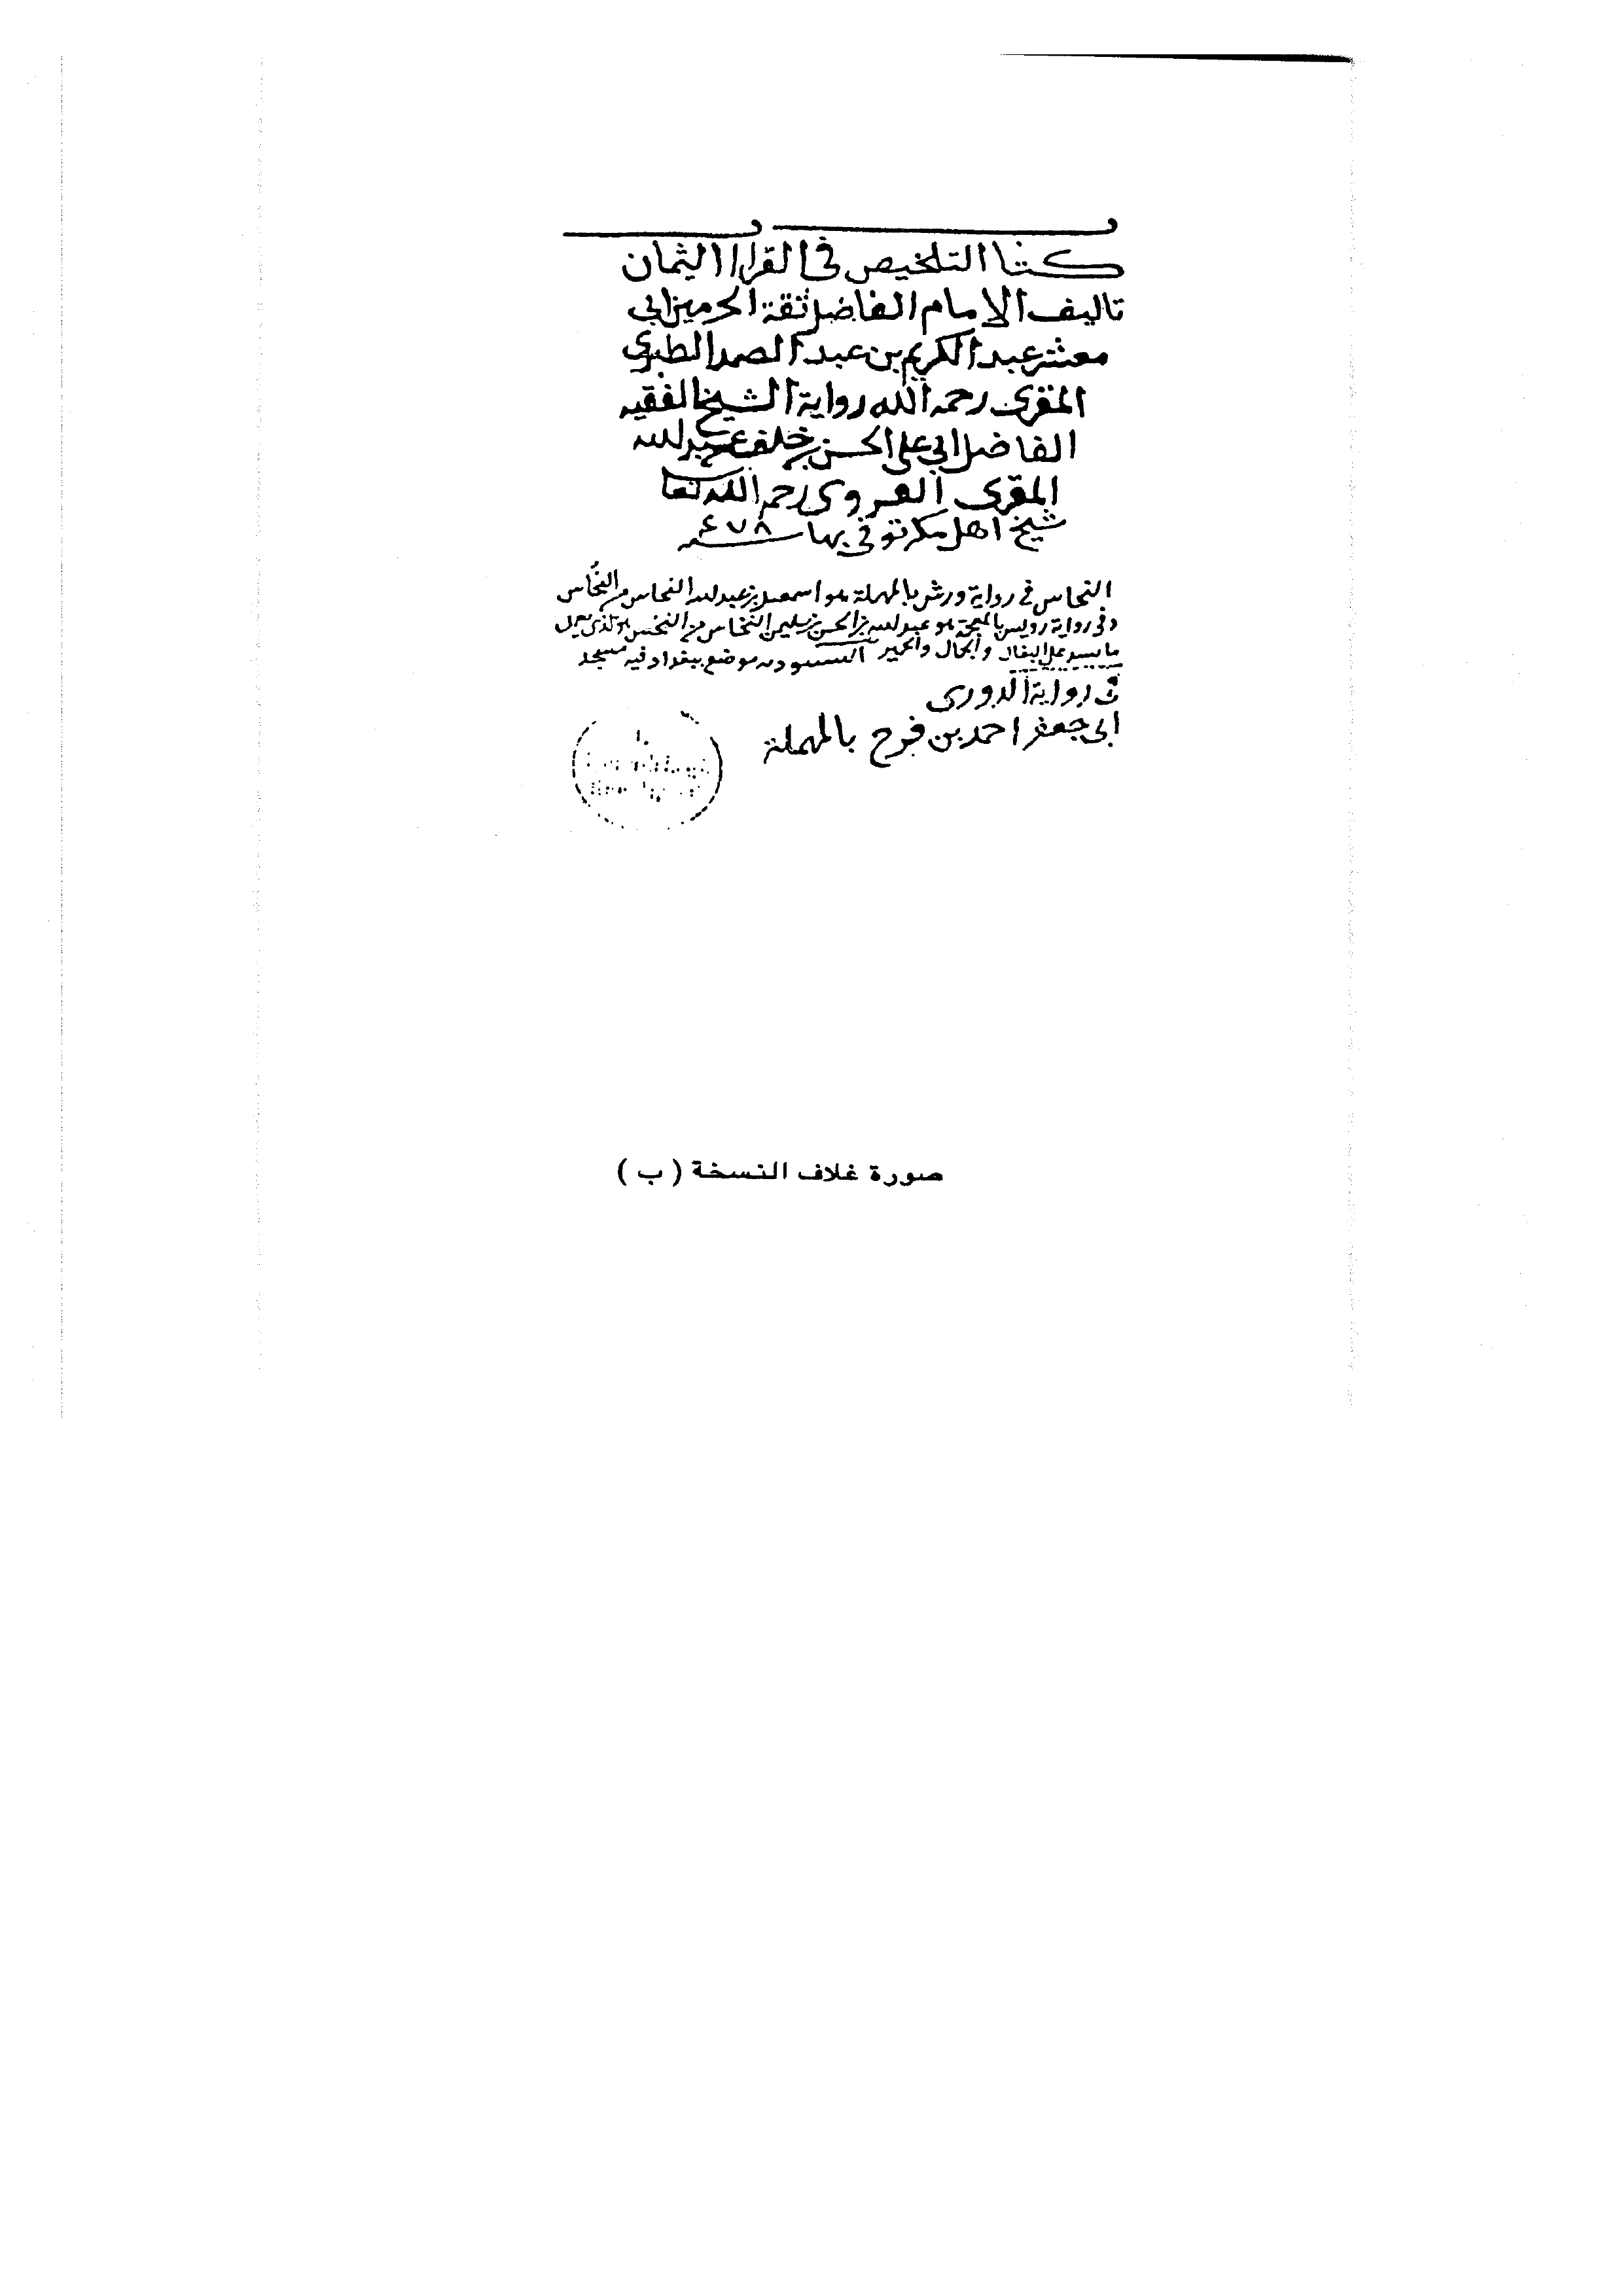 كتاب التلخيص في القراءات الثمان
تاليف الامام الفاضل ثقة الحرمين ابي
معشر عبد الكريم بن عبد الصمد الطبري
المقرى رحمه الله رواية الشيخ الفقيه
الفاضل ابي على الحسن بن خلف بن عبد الله
المقرى القروى رحمه الله تعالى
شيخ اهل مكة توفي بها سنة ٤٧٨
النحاس في رواية ورش بالمهملة هو اسمعيل بن عبد الله النحاس من النحاس
وفى رواية رويس بالمعجمة هو عبد الله بن الحسن بن سليمن النخاس من النخس هو الذى
على البغال والجمال والحمير موضع ببغداد فيه مسجد
في رواية الدورى
ابى جعفر احمد بن فرح بالمهملة
صورة غلاف النسخة ( ب )